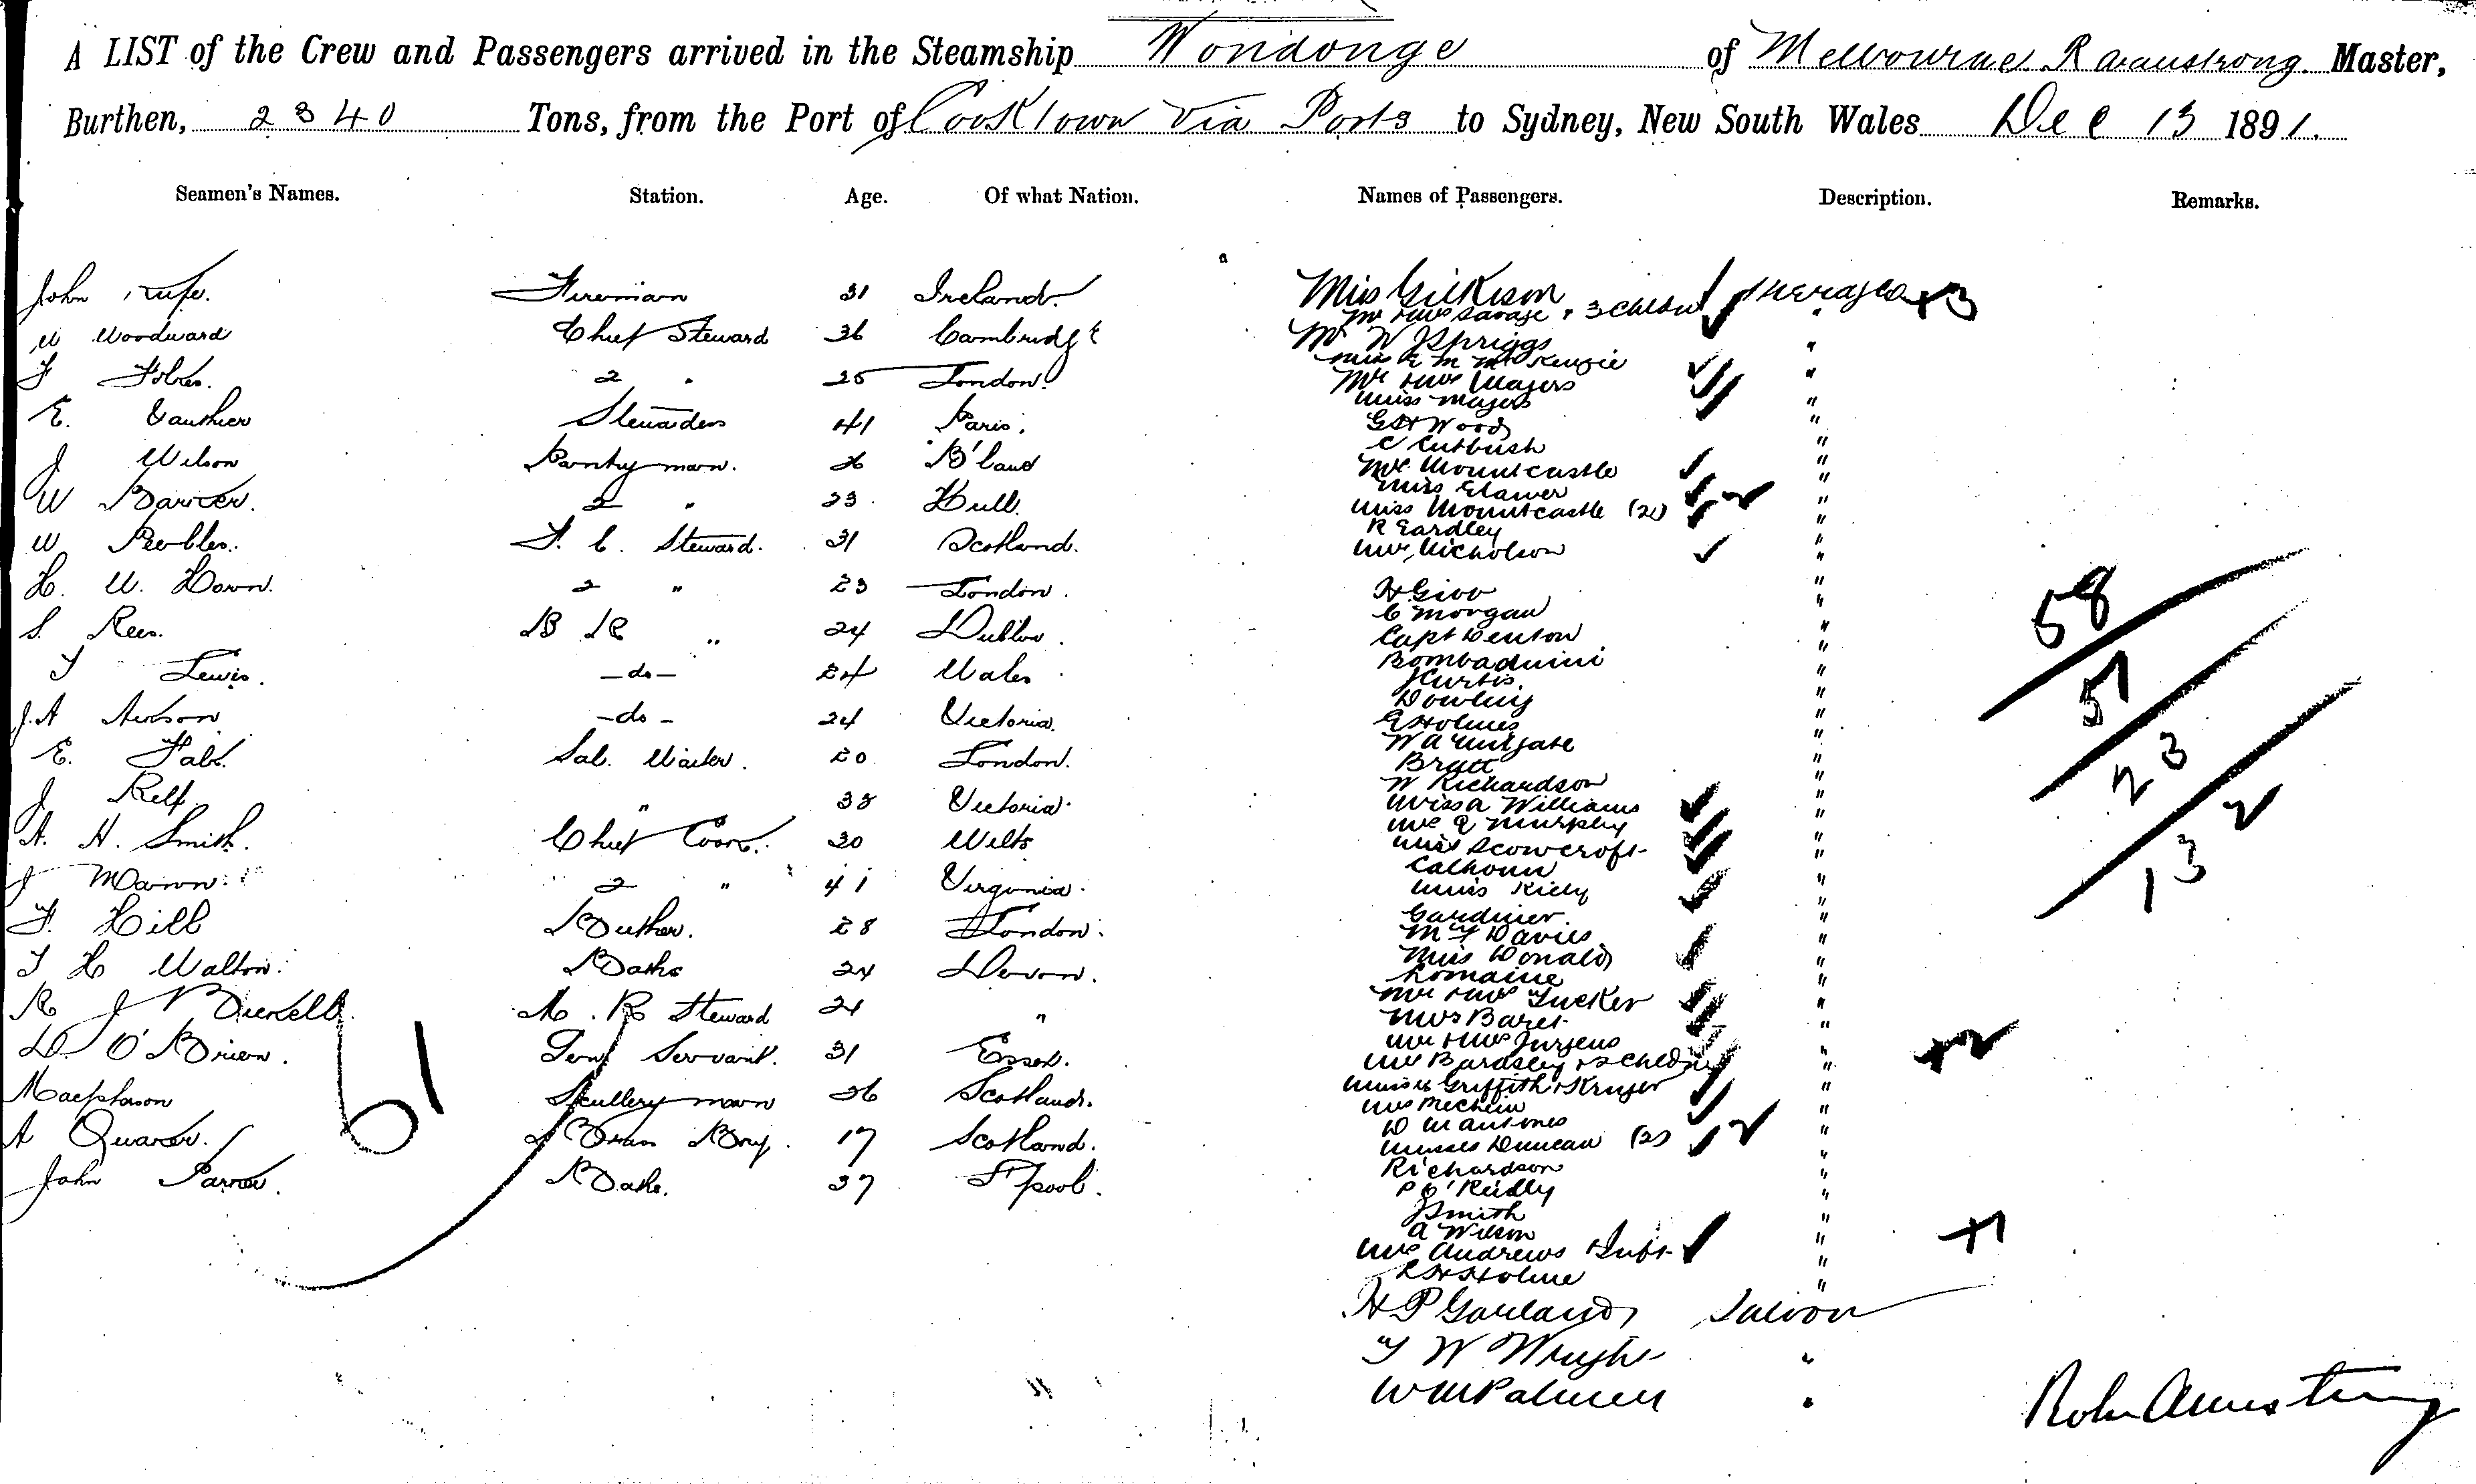 A LIST of the Crew and Passengers arrived in the Steamship Wodonga of Melbourne R Armstrong Master,
Burthen, 2340 Tons, from the Port of Cooktown Via Ports to Sydney, New South Wales Dec 13 1891.
Seamen's Names. Station. Age. Of what Nation. Names of Passengers. Description. Remarks.
John Fireman 31 Ireland. Miss Gilkison Steerage +3
Mr & Mrs Savage & 3 Children "
W Woodward Chief Steward 36 Cambridge Mr W J Spriggs "
Miss E M McKenzie
F 2 " 25 London. Mr & Mrs Mayers "
Miss Mayers "
E. Gauthier Stewardess 41 Paris. G H Wood "
C Cutbush "
J Wilson Pantry man. 26 Q'land Mrs Mountcastle "
Miss "
W Barker. 2 " 23 Hull. Miss Mountcastle (2) 2 "
R Eardley "
W Peebles. F. C. Steward. 31 Scotland. Mrs Nicholson "
H. W. Down. 2 " 23 London. H Gibb "
C Morgan "
S. Rees. B R " 24 Dublin. Capt Denton "
Bombaduini "
T Lewis. -do- 24 Wales J Curtis. "
Dowling "
J.A -do- 24 Victoria. E Holmes "
W A "
E. Sal. Waiter. 20 London. Bratt "
W Richardson "
J Relf " 38 Victoria. Miss A Williams "
Mrs Murphy "
A. H. Smith. Chief Cook. 30 Wilts Miss Scowcroft "
Calhoun "
J Mann. 2 " 41 Virginia. Miss Kiely "
F. Hill Butcher. 28 London. Gardiner. "
M F Davies "
T H Walton. Baker 24 Devon. Miss Donald "
Romaine "
R J Bicknell M. R Steward 24 " Mr & Mrs Tucker "
Mrs Baret "
D O'Brien. Genl Servant. 31 Essex. Mr & Mrs Jurgens "
Mrs Bardsley & 2 Children " +2
Macpherson Scullery man 26 Scotland. Misses Griffith & Kruger "
Mrs "
A Quaver. Boy. 17 Scotland. D "
Misses Duncan (2) 2 "
John Baker. 37 L'pool. Richardson "
P O'Reilly "
J Smith "
A Wilson "
Mrs Andrews & Inft " +1
R H Holme "
H P Garland Saloon
T W Wright "
W M Palmer "
61
58
51
23
2
13
Robt Armstrong